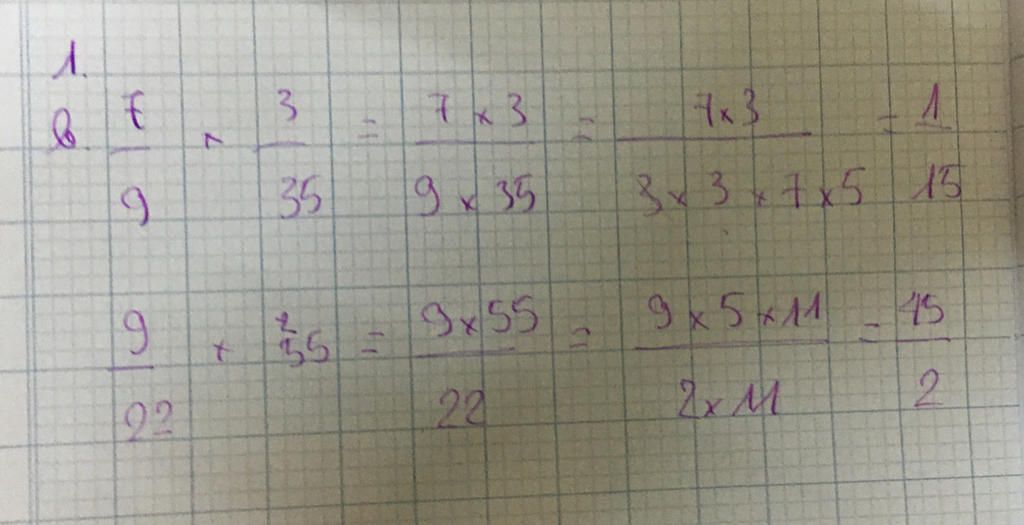 1.
b. 7/9 × 3/35 = 7 × 3 / 9 × 35 = 7 × 3 / 3 × 3 × 7 × 5 = 1/15
9/22 × 55 = 9 × 55 / 22 = 9 × 5 × 11 / 2 × 11 = 45/2